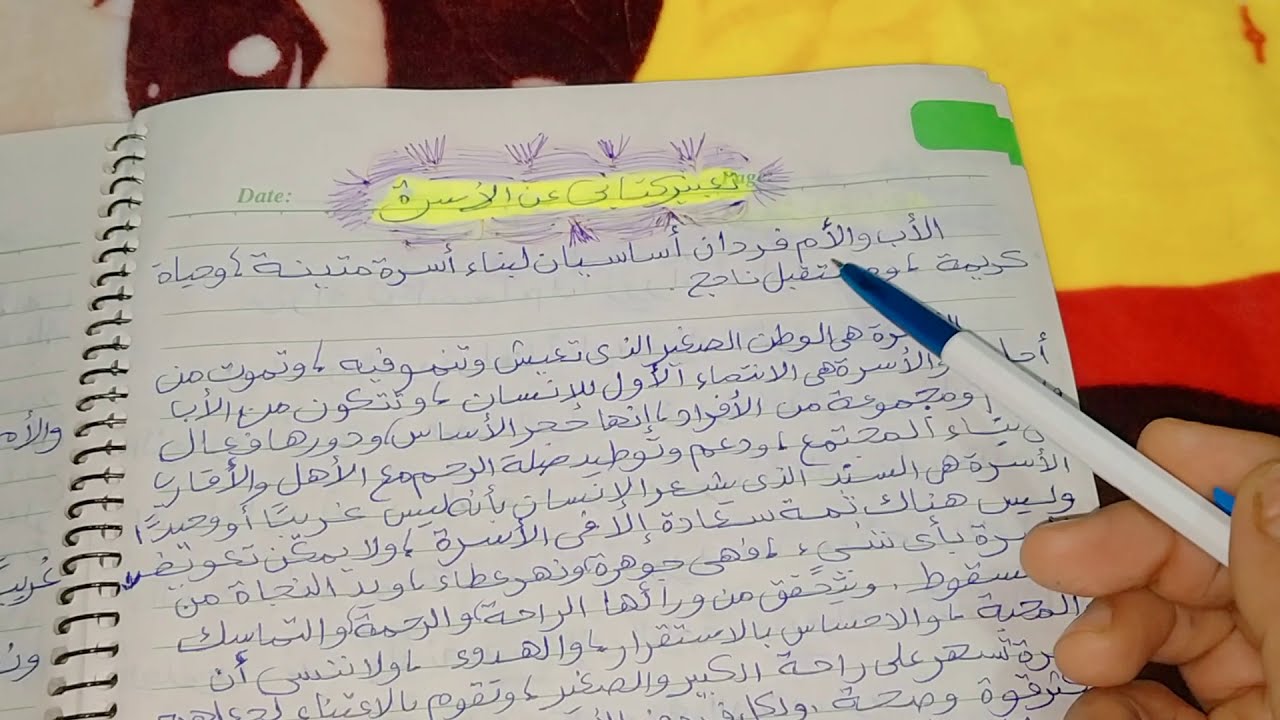 Date:
Page:
تعبير كتابي عن الأسرة
الأب والأم فردان أساسيان لبناء أسرة متينة، وحياة
كريمة، تقبل ناجح.
هي الوطن الصغير الذي تعيش وتنمو فيه، وتموت من
والأسرة هي الانتماء الأول للإنسان، وتتكون من الأب
ومجموعة من الأفراد، إنها حجر الأساس، ودورها فعال
بناء المجتمع، ودعم وتوطيد صلة الرحم مع الأهل والأقارب
الأسرة هي السند الذي شعر الإنسان بأنه ليس غريبًا أو وحيدًا،
وليس هناك ثمة سعادة إلا في الأسرة، ولا يمكن تعويض
بأي شيء، فهي جوهرة، ونهر عطاء، ويد النجاة من
السقوط، ويتحقق من ورائها الراحة، والرحمة، والتماسك
المحبة، والاحساس بالاستقرار، والهدوء، ولا ننسى أن
تسهر على راحة الكبير والصغير، وتقوم بالاعتناء
قوة وصحة،
والأم
غريبًا